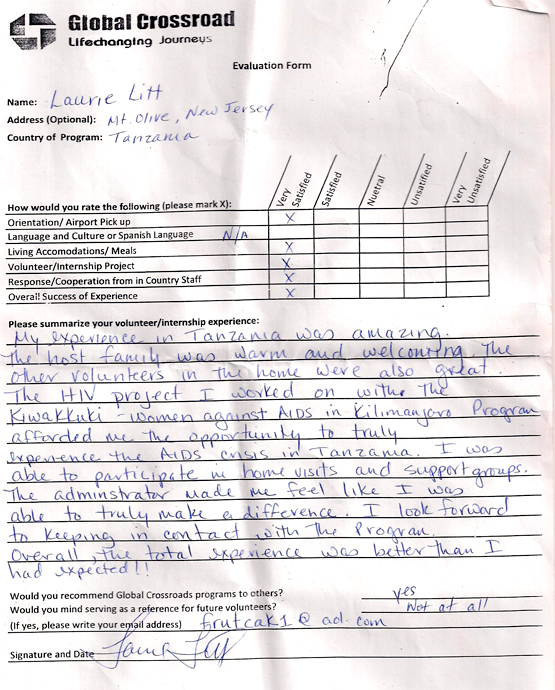 Global Crossroad
Lifechanging Journeys
Evaluation Form
Name: Laurie Litt
Address (Optional): Mt. Olive, New Jersey
Country of Program: Tanzania
How would you rate the following (please mark X): Very Satisfied Satisfied Nuetral Unsatified Very Unsatisfied
Orientation/ Airport Pick up X
Language and Culture or Spanish Language N/A
Living Accomodations/ Meals X
Volunteer/Internship Project X
Response/Cooperation from in Country Staff X
Overall Success of Experience X
Please summarize your volunteer/internship experience:
My experience in Tanzania was amazing.
The host family was warm and welcoming. The
other volunteers in the home were also great.
The HIV project I worked on withe The
Kiwakkuki - Women against AIDS in Kilimanjaro Program
afforded me the opportunity to truly
experience the AIDS crisis in Tanzania. I was
able to participate in home visits and support groups.
The adminstrator made me feel like I was
able to truly make a difference. I look forward
to keeping in contact with the Program.
Overall, the total experience was better than I
had expected!!
Would you recommend Global Crossroads programs to others? yes
Would you mind serving as a reference for future volunteers? Not at all
(If yes, please write your email address) frutcak1@aol.com
Signature and Date